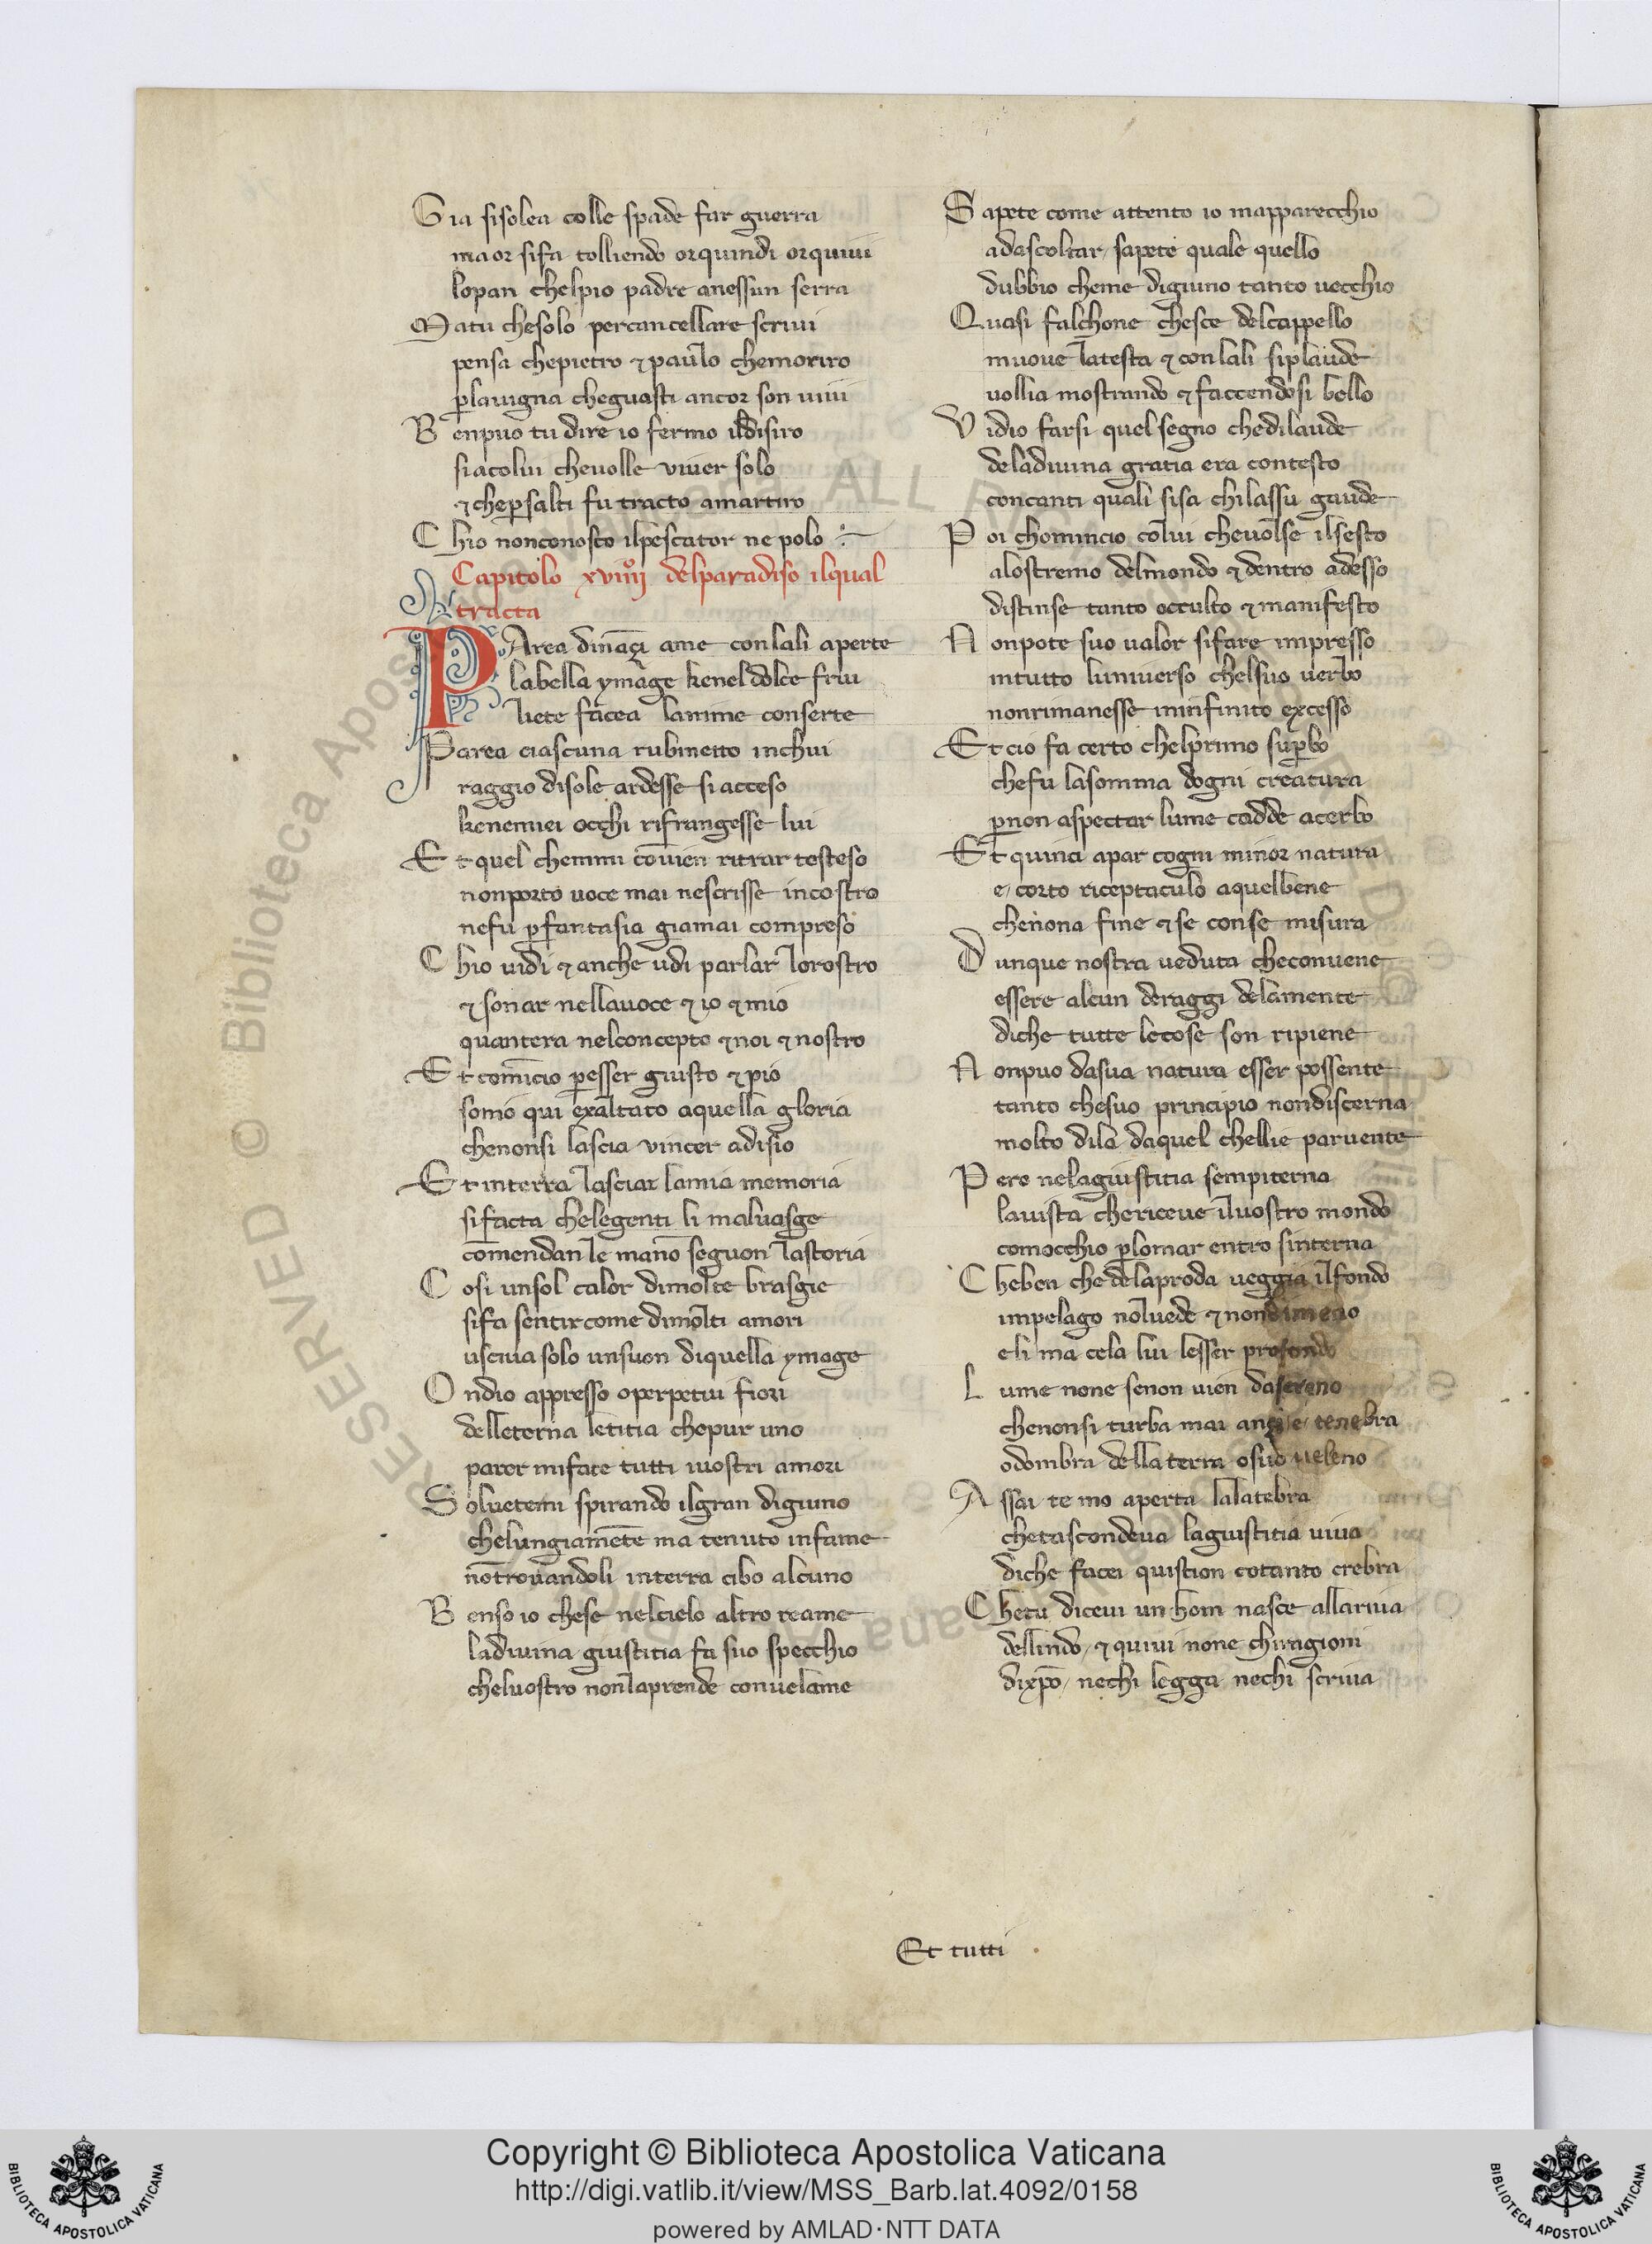 Gia sisolea colle spade far guerra
ma or sifa tolliendo orquindi orquiui
lopan chelpio padre anessun serra
Matu chesolo percancellare scriui
pensa chepietro ⁊ paulo chemoriro
ꝑlauigna cheguasti ancor son uiui
Benpuo tu dire io fermo ildisiro
siacolui cheuolle viuer solo
⁊ cheꝑsalti fu tracto amartiro
Chio nonconosco ilpescator ne polo
Capitolo xviiij delparadiso ilqual
tracta
PArea dinãçi ame conlali aperte
labella ymage kenel dolce frui
liete facea lanime conserte
Parea ciascuna rubinetto inchui
raggio disole ardesse si acceso
kenemiei occhi rifrangesse lui
Et quel chemmi cõuien ritrar testeso
nonporto uoce mai nescrisse incostro
nefu ꝑfantasia giamai compreso
Chio uidi ⁊ anche udi parlar lorostro
⁊ sonar nellauoce ⁊ io ⁊ mio
quantera nelconcepto ⁊ noi ⁊ nostro
Et comĩcio ꝑesser giusto ⁊ pio
somo qui exaltato aquella gloria
chenonsi lascia vincer adisio
Et interra lasciar lamia memoria
sifacta chelegenti li maluasge
cõmendan le manõ seguon lastoria
Cosi unsol calor dimolte brasgie
sifa sentir come dimolti amori
usciua solo unsuon diquella ymage
Ondio appresso operpetui fiori
delleterna letitia chepur uno
parer mifate tutti iuostri amori
Soluetemi spirando ilgran digiuno
chelungiamẽte ma tenuto infame
nõtrouandoli interra cibo alcuno
Benso io chese nelcielo altro reame
ladiuina giustitia fa suo specchio
cheluostro nonlaprende conuelame
Sapete come attento io mapparecchio
adascoltar / sapete quale quello
dubbio cheme digiuno tanto uecchio
Quasi falchone chesce delcappello
muoue latesta ⁊ conlali siplaude
uollia mostrando ⁊ faccendosi bello
Vidio farsi quel segno chedilaude
deladiuina gratia era contesto
concanti quali sisa chilassu gaude
Poi chomincio colui cheuolse ilsesto
alostremo delmondo ⁊ dentro adesso
distinse tanto occulto ⁊ manifesto
Nonpote suo ualor sifare impresso
intutto luniuerso chelsuo uerbo
nonrimanesse ininfinito excesso
Et cio fa certo chelprimo suꝑbo
chefu lasomma dogni creatura
ꝑnon aspectar lume cadde acerbo
Et quinci apar cogni minor natura
e / corto riceptaculo aquelbene
chenona fine ⁊ se conse misura
Dunque nostra ueduta checonuene
essere alcun deraggi delamente
diche tutte lecose son ripiene
Nonpuo dasua natura esser possente
tanto chesuo principio nondiscerna
molto dila daquel chellie paruente
Pero nelagiustitia sempiterna
lauista chericeue iluostro mondo
comocchio ꝑlomar entro sinterna
Cheben che delaproda ueggia ilfondo
impelago noluede ⁊ nondimeno
eli ma cela lui lesser profondo
Lume none senon uien dasereno
chenonsi turba mai tenebra
odombra della terra osuo ueleno
Assai te mo aperta lalatebra
chetascondeua lagiustitia uiua
diche facei quistion cotanto crebra
Chetu diceui un hom nasce allariua
dellindo / ⁊ quiui none chiragioni
dixp̃o / nechi legga nechi scriua
Et tutti
Copyright © Biblioteca Apostolica Vaticana
http://digi.vatlib.it/view/MSS_Barb.lat.4092/0158
powered by AMLAD·NTT DATA
BIBLIOTECA APOSTOLICA VATICANA
BIBLIOTECA APOSTOLICA VATICANA